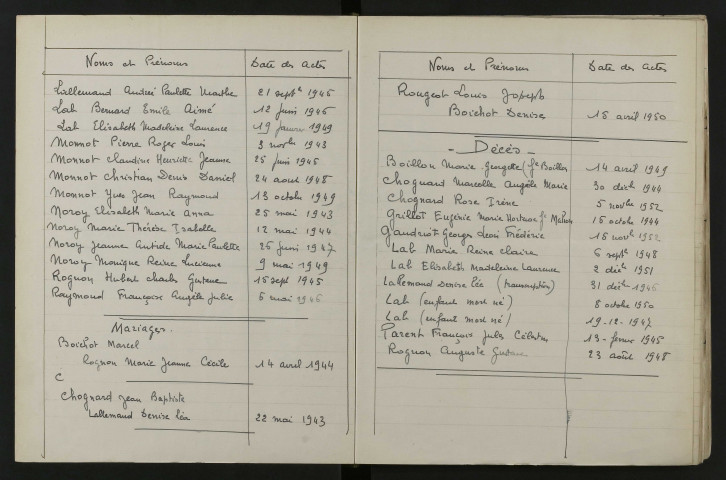 Noms et Prénoms Date des Actes
Lallemand Andrée Paulette Marthe 21 septbe 1946
Lab Bernard Emile Aimé 12 juin 1946
Lab Elisabeth Madeleine Laurence 19 janvier 1949
Monnot Pierre Roger Louis 3 novbre 1943
Monnot Claudine Henriette Jeanne 25 juin 1946
Monnot Christian Denis Daniel 24 aout 1948
Monnot Yves Jean Raymond 13 octobre 1949
Noroy Elisabeth Marie Anna 25 mai 1943
Noroy Marie Thérèse Isabelle 12 mai 1944
Noroy Jeanne Antide Marie Paulette 25 juin 1947
Noroy Monique Reine Lucienne 9 mai 1949
Rognon Hubert Charles Gustave 15 sept 1945
Raymond Françoise Angèle Julie 6 mai 1946
Mariages.
Boichot Marcel
Rognon Marie Jeanne Cécile 14 avril 1944
C
Chognard Jean Baptiste
Lallemand Denise Léa 22 mai 1943
Noms et Prénoms Date des Actes
Rougeot Louis Joseph
Boichot Denise 15 avril 1950
- Décès -
Boillon Marie Georgette (fe Boillon 14 avril 1949
Chognard Marcelle Angèle Marie 30 décb 1944
Chognard Rose Irène 5 novbre 1952
Grillot Eugénie Marie Hortense fe 15 octobre 1944
Gaudriot Georges Léon Frédéric 15 novb 1952
Lab Marie Reine Claire 6 septb 1948
Lab Elisabeth Madeleine Laurence 2 décb 1951
Lallemand Denise Léa (transcription) 31 décb 1946
Lab (enfant mort né) 8 octobre 1950
Lab (enfant mort né) 19-12-1947
Parent François Jules Célestin 13 février 1945
Rognon Auguste Gustave 23 août 1948